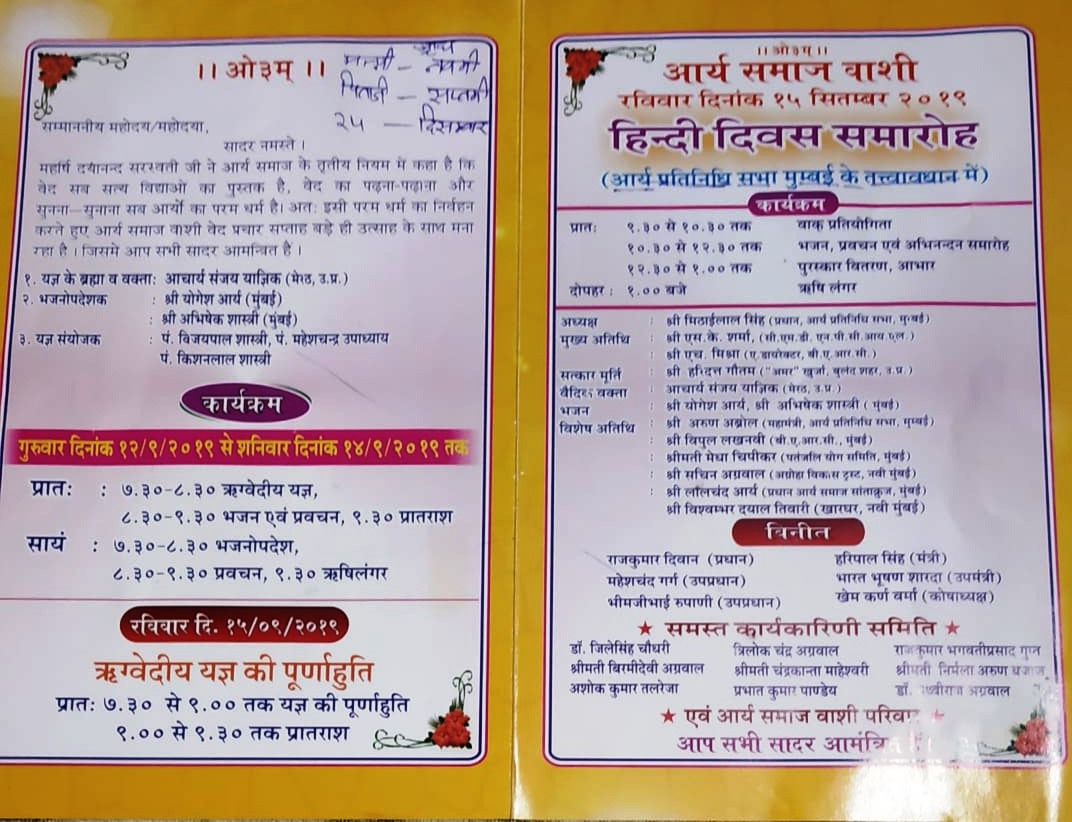 ।। ओ३म् ।।
माताजी – नवमी
पिताजी – सप्तमी
२५ — दिसम्बर
सम्माननीय महोदय/महोदया,
सादर नमस्ते ।
महर्षि दयानन्द सरस्वती जी ने आर्य समाज के तृतीय नियम में कहा है कि
वेद सब सत्य विद्याओ का पुस्तक है, वेद का पढ़ना-पढ़ाना और
सुनना-सुनाना सब आर्यो का परम धर्म है। अतः इसी परम धर्म का निर्वहन
करते हुए आर्य समाज वाशी वेद प्रचार सप्ताह बड़े ही उत्साह के साथ मना
रहा है । जिसमे आप सभी सादर आमन्त्रित है ।
१. यज्ञ के ब्रह्मा व वक्ता: आचार्य संजय याज्ञिक (मेरठ, उ.प्र.)
२. भजनोपदेशक : श्री योगेश आर्य (मुंबई)
: श्री अभिषेक शास्त्री (मुंबई)
३. यज्ञ संयोजक : पं. विजयपाल शास्त्री, पं. महेशचन्द्र उपाध्याय
पं. किशनलाल शास्त्री
कार्यक्रम
गुरुवार दिनांक १२/९/२०१९ से शनिवार दिनांक १४/९/२०१९ तक
प्रातः : ७.३०-८.३० ऋग्वेदीय यज्ञ,
८.३०-९.३० भजन एवं प्रवचन, ९.३० प्रातराश
सायं : ७.३०-८.३० भजनोपदेश,
८.३०-९.३० प्रवचन, ९.३० ऋषिलंगर
रविवार दि. १५/०९/२०१९
ऋग्वेदीय यज्ञ की पूर्णाहुति
प्रातः ७.३० से ९.०० तक यज्ञ की पूर्णाहुति
९.०० से ९.३० तक प्रातराश
।। ओ३म् ।।
आर्य समाज वाशी
रविवार दिनांक १५ सितम्बर २०१९
हिन्दी दिवस समारोह
(आर्य प्रतिनिधि सभा मुम्बई के तत्त्वावधान में)
कार्यक्रम
प्रातः ९.३० से १०.३० तक वाक् प्रतियोगिता
१०.३० से १२.३० तक भजन, प्रवचन एवं अभिनन्दन समारोह
१२.३० से १.०० तक पुरस्कार वितरण, आभार
दोपहर : १.०० बजे ऋषि लंगर
अध्यक्ष : श्री मिठाईलाल सिंह (प्रधान, आर्य प्रतिनिधि सभा, मुम्बई)
मुख्य अतिथि : श्री एस.के. शर्मा, (सी.एम.डी. एन.पी.सी.आय.एल.)
: श्री एच. मिश्रा (ए.डायरेक्टर, बी.ए.आर.सी.)
सत्कार मूर्ति : श्री हरिदत्त गौतम ("अमर" खुर्जा, बुलंद शहर, उ.प्र.)
वैदिक वक्ता : आचार्य संजय याज्ञिक (मेरठ, उ.प्र.)
भजन : श्री योगेश आर्य, श्री अभिषेक शास्त्री ( मुंबई)
विशेष अतिथि : श्री अरुण अब्रोल (महामंत्री, आर्य प्रतिनिधि सभा, मुम्बई)
: श्री विपुल लखनवी (बी.ए.आर.सी., मुंबई)
: श्रीमती मेधा चिपीकर (पतंजलि योग समिति, मुंबई)
: श्री सचिन अग्रवाल (अग्रोहा विकास ट्रस्ट, नवी मुंबई)
: श्री लालचंद आर्य (प्रधान आर्य समाज सांताक्रुज, मुंबई)
श्री विश्वम्भर दयाल तिवारी (खारघर, नवी मुंबई)
विनीत
राजकुमार दिवान (प्रधान) हरिपाल सिंह (मंत्री)
महेशचंद गर्ग (उपप्रधान) भारत भूषण शारदा (उपमंत्री)
भीमजीभाई रुपाणी (उपप्रधान) खेम कर्ण वर्मा (कोषाध्यक्ष)
★ समस्त कार्यकारिणी समिति ★
डॉ. जिलेसिंह चौधरी त्रिलोक चंद्र अग्रवाल राजकुमार भगवतीप्रसाद गुप्त
श्रीमती बिरमीदेवी अग्रवाल श्रीमती चंद्रकान्ता माहेश्वरी श्रीमती निर्मला अरुण बजाज
अशोक कुमार तलरेजा प्रभात कुमार पाण्डेय डॉ. अग्रवाल
★ एवं आर्य समाज वाशी परिवार ★
आप सभी सादर